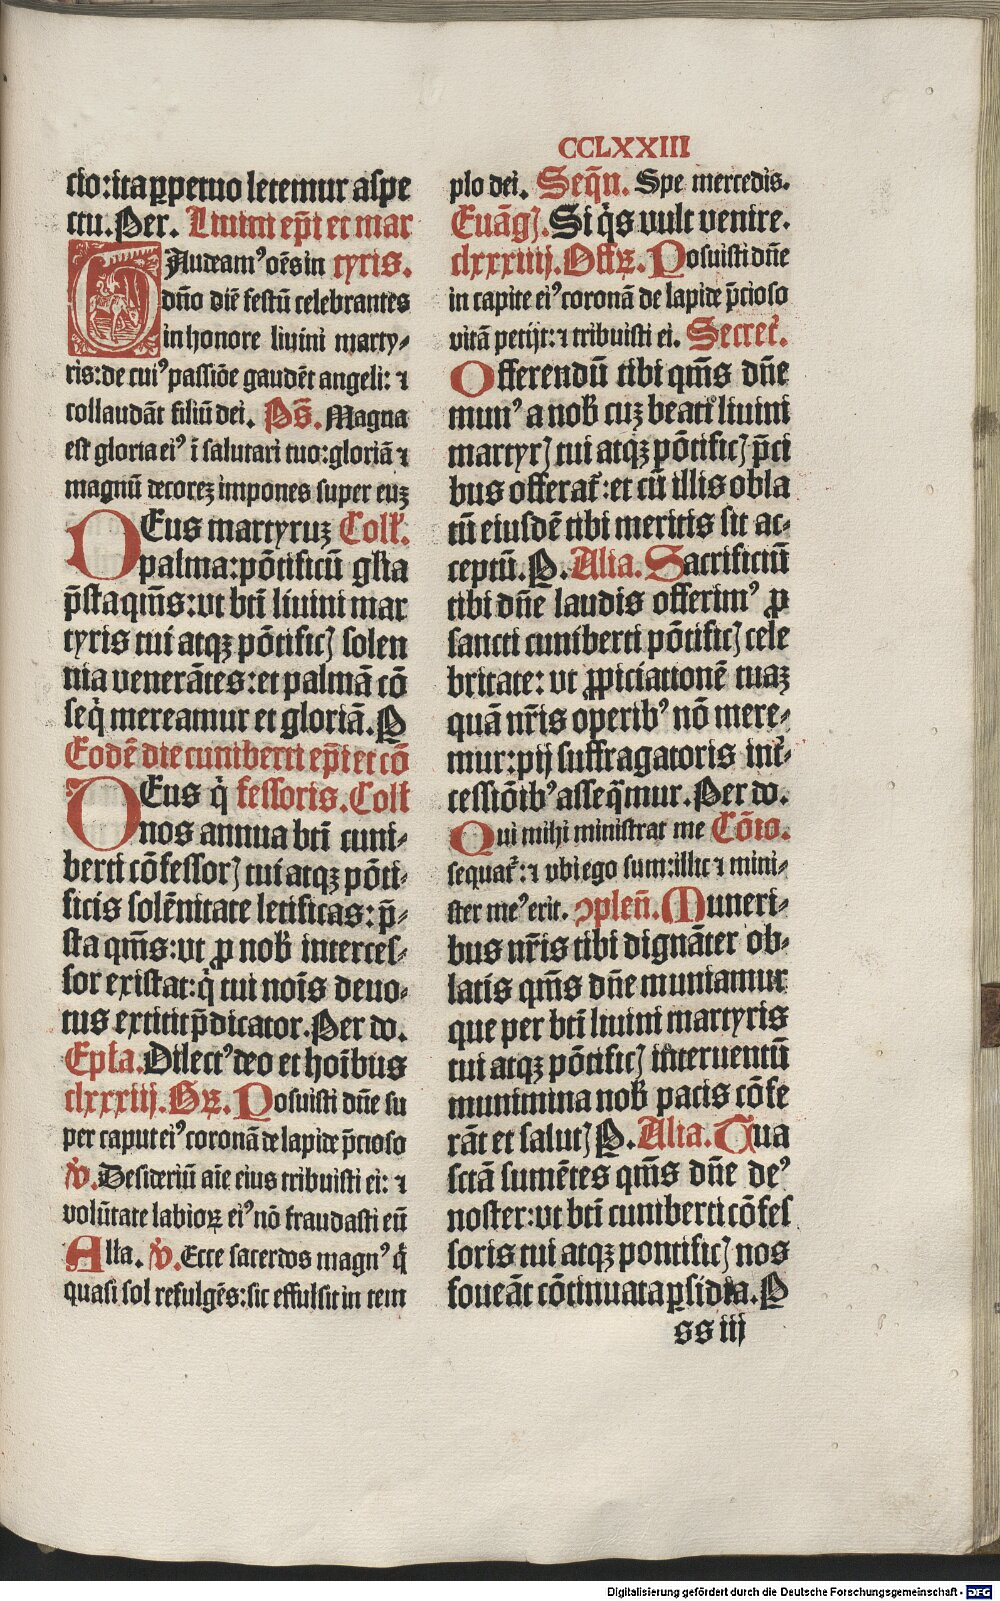 CCLXXIII
cio: ita ꝑpetuo letemur aspe
ctu. Per. Liuini ep̄i et mar
GAudeamꝰ oēs in tyris.
dn̄o diē festū celebrantes
in honore liuini marty⸗
ris: de cuiꝰ passiōe gaudēt angeli: ⁊
collaudāt filiū dei. Ps̄. Magna
est gloria eiꝰ ī salutari tuo: gloriā ⁊
magnū decoreꝫ impones super euꝫ
DEus martyruꝫ Coll̄.
palma: pōtificū gl̄ia
p̄sta qm̄s: vt bt̄i liuini mar
tyris tui atqꝫ pōtificꝭ solen
nia venerātes: et palmā cō
seq̇ mereamur et gloriā. P
Eodē die cuniberti ep̄i et cō
DEus q̇ fessoris. Coll̄
nos annua bt̄i cuni⸗
berti cōfessorꝭ tui atqꝫ pōti⸗
ficis solēnitate letificas: p̄⸗
sta qm̄s: vt ꝓ nob̄ interces⸗
sor existat: q̇ tui nois̄ deuo⸗
tus extitit p̄dicator. Per do.
Epl̄a. Dilectꝰ deo et hoībus
clxxxiij. Gꝝ. Posuisti dn̄e su
per caput eiꝰ coronā de lapide p̄cioso
v̇. Desideriū aīe eius tribuisti ei: ⁊
volūtate labioꝝ eiꝰ nō fraudasti eū
Alla. v̇. Ecce sacerdos magnꝰ q̇
quasi sol refulgēs: sic effulsit in tem
plo dei. Seqn̄. Spe mercedis.
Euāgꝭ. Si q̇s vult venire.
clxxxiiij. Offꝝ. Posuisti dn̄e
in capite eiꝰ coronā de lapide p̄cioso
vitā petijt: ⁊ tribuisti ei. Secret̄.
Offerendū tibi qm̄s dn̄e
munꝰ a nob̄ cuꝫ beati liuini
martyrꝭ tui atqꝫ pōtificꝭ p̄ci
bus offerat̄: et cū illis obla
tū eiusdē tibi meritis sit ac⸗
ceptū. P. Alia. Sacrificiū
tibi dn̄e laudis offerimꝰ ꝓ
sancti cuniberti pōtificꝭ cele
britate: vt ꝓpiciationē tuaꝫ
quā nr̄is operibꝰ nō mere⸗
mur: pij suffragatoris int̄⸗
cessiōibꝰ asseq̇mur. Per do.
Qui mihi ministrat me Cōio.
sequat̄: ⁊ vbi ego sum: illic ⁊ mini⸗
ster meꝰ erit. ꝯplen̄. Muneri⸗
bus nr̄is tibi dignāter ob⸗
latis qm̄s dn̄e muniamur
que per bt̄i liuini martyris
tui atqꝫ pōtificꝭ interuentū
munimina nob̄ pacis cōfe
rāt et salutꝭ P. Alia. Tua
sctā sumētes qm̄s dn̄e deꝰ
noster: vt bt̄i cuniberti cōfes
soris tui atqꝫ pontificꝭ nos
foueāt cōtinuata p̄sidia. P
ss iij
Digitalisierung gefördert durch die Deutsche Forschungsgemeinschaft - DFG